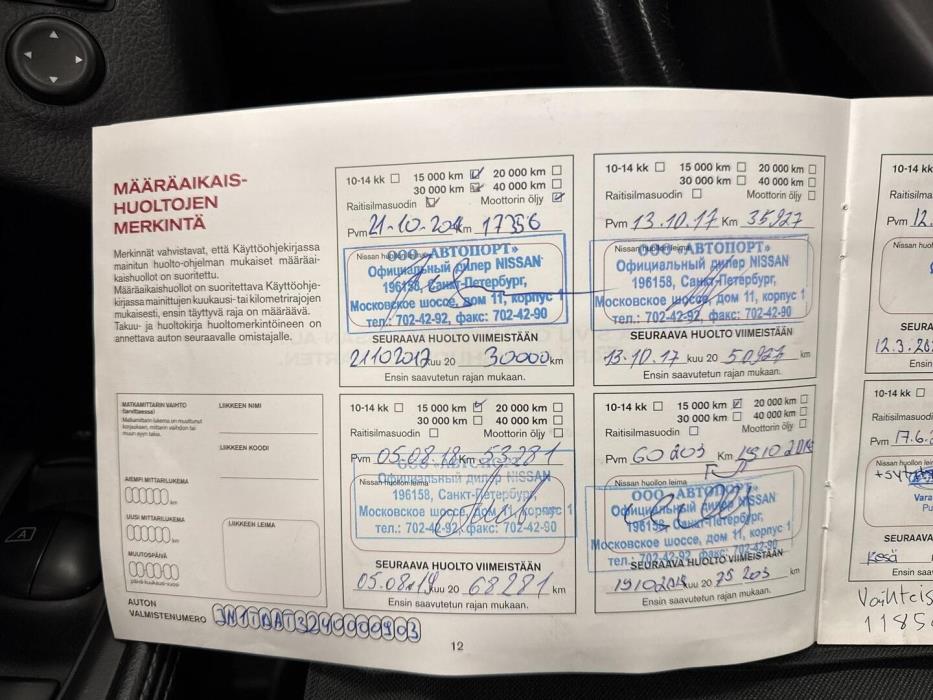 MÄÄRÄAIKAIS-
HUOLTOJEN
MERKINTÄ
Merkinnät vahvistavat, että Käyttöohjekirjassa
mainitun huolto-ohjelman mukaiset määräai-
kaishuollot on suoritettu.
Määräaikaishuollot on suoritettava Käyttöohje-
kirjassa mainittujen kuukausi- tai kilometrirajojen
mukaisesti, ensin täyttyvä raja on määräävä.
Takuu- ja huoltokirja huoltomerkintöineen on
annettava auton seuraavalle omistajalle.
10-14 kk 15 000 km 20 000 km
30 000 km 40 000 km
Raitisilmasuodin Moottorin öljy
Pvm 21-10-2016 Km 17356
Nissan huollon leima
ООО «АВТОПОРТ»
Официальный дилер NISSAN
196158, Санкт-Петербург,
Московское шоссе, дом 11, корпус 1
тел.: 702-42-92, факс: 702-42-90
SEURAAVA HUOLTO VIIMEISTÄÄN
21102017 kuu 20 30000 km
Ensin saavutetun rajan mukaan.
10-14 kk 15 000 km 20 000 km
30 000 km 40 000 km
Raitisilmasuodin Moottorin öljy
Pvm 13.10.17 Km 35927
Nissan huollon leima
ООО «АВТОПОРТ»
Официальный дилер NISSAN
196158, Санкт-Петербург,
Московское шоссе, дом 11, корпус 1
тел.: 702-42-92, факс: 702-42-90
SEURAAVA HUOLTO VIIMEISTÄÄN
13.10.17 kuu 20 50927 km
Ensin saavutetun rajan mukaan.
MATKAMITTARIN VAIHTO
(tarvittaessa)
Matkamittarin lukema on muuttunut
korjauksen, mittarin vaihdon tai
muun syyn takia.
LIIKKEEN NIMI
LIIKKEEN KOODI
AIEMPI MITTARILUKEMA
km
UUSI MITTARILUKEMA
km
MUUTOSPÄIVÄ
päivä-kuukausi-vuosi
LIIKKEEN LEIMA
AUTON
VALMISTENUMERO JN1TDAT32U0000903
10-14 kk 15 000 km 20 000 km
30 000 km 40 000 km
Raitisilmasuodin Moottorin öljy
Pvm 05.08.18 Km 53281
Nissan huollon leima
Официальный дилер NISSAN
196158, Санкт-Петербург,
Московское шоссе, дом 11, корпус 1
тел.: 702-42-92, факс: 702-42-90
SEURAAVA HUOLTO VIIMEISTÄÄN
05.0819 kuu 20 68281 km
Ensin saavutetun rajan mukaan.
10-14 kk 15 000 km 20 000 km
30 000 km 40 000 km
Raitisilmasuodin Moottorin öljy
Pvm 60 203 Km 19102018
Nissan huollon leima
ООО «АВТОПОРТ»
Официальный дилер NISSAN
196158, Санкт-Петербург,
Московское шоссе, дом 11, корпус 1
тел.: 702-42-92, факс: 702-42-90
SEURAAVA HUOLTO VIIMEISTÄÄN
kuu 20 75 203 km
Ensin saavutetun rajan mukaan.
12
10-14 kk
Raitisilmas
Pvm 12.
Nissan huol
SEURA
12.3.20
Ensin
10-14 kk
Raitisilmasuodi
Pvm 17.6.2
Nissan huollon lei
Vara
SEURAA
Kesä
Ensin saa
Vaihteis
1185